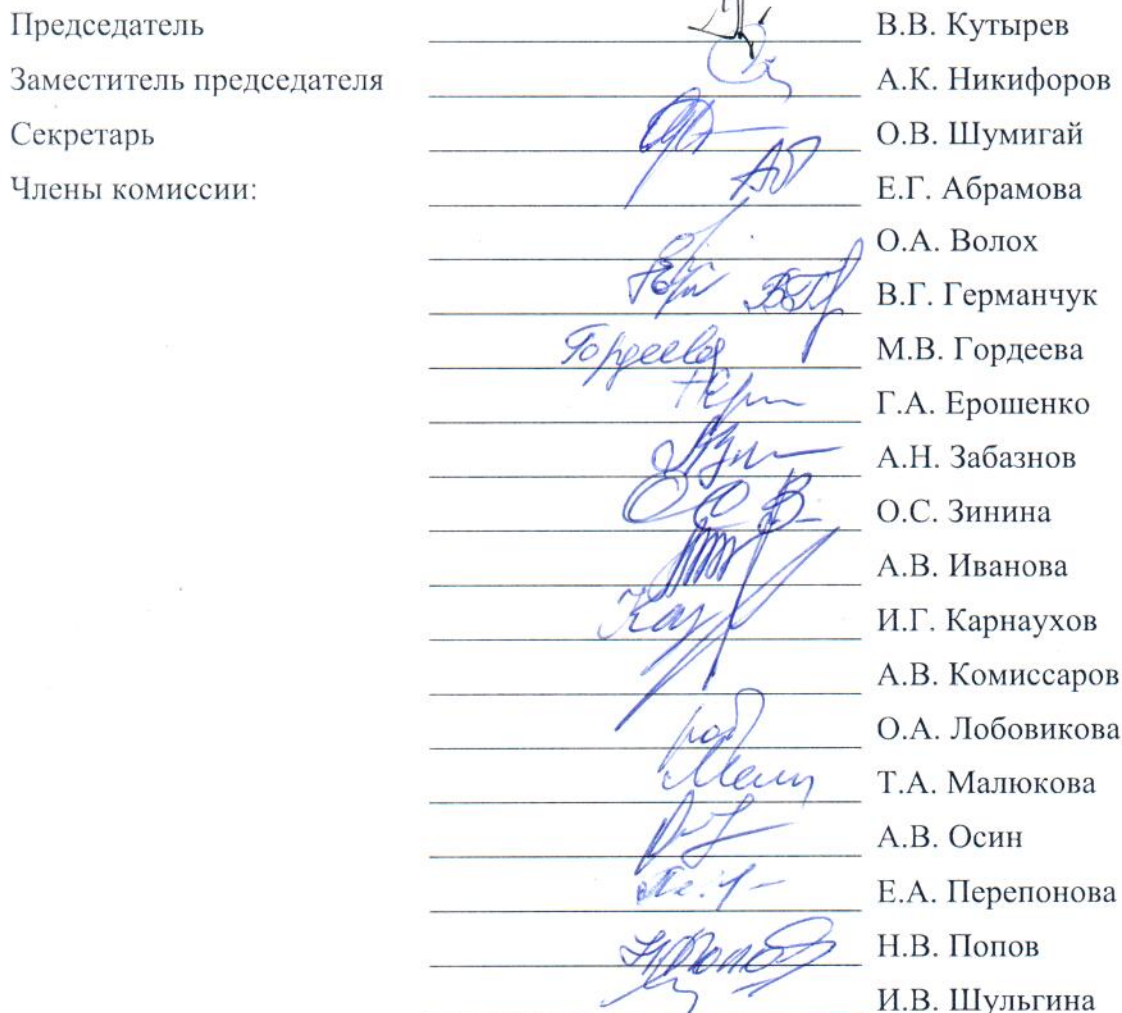 Председатель В.В. Кутырев
Заместитель председателя А.К. Никифоров
Секретарь О.В. Шумигай
Члены комиссии: Е.Г. Абрамова
О.А. Волох
В.Г. Германчук
Гордеева М.В. Гордеева
Г.А. Ерошенко
А.Н. Забазнов
О.С. Зинина
А.В. Иванова
И.Г. Карнаухов
А.В. Комиссаров
О.А. Лобовикова
Т.А. Малюкова
А.В. Осин
Е.А. Перепонова
Н.В. Попов
И.В. Шульгина